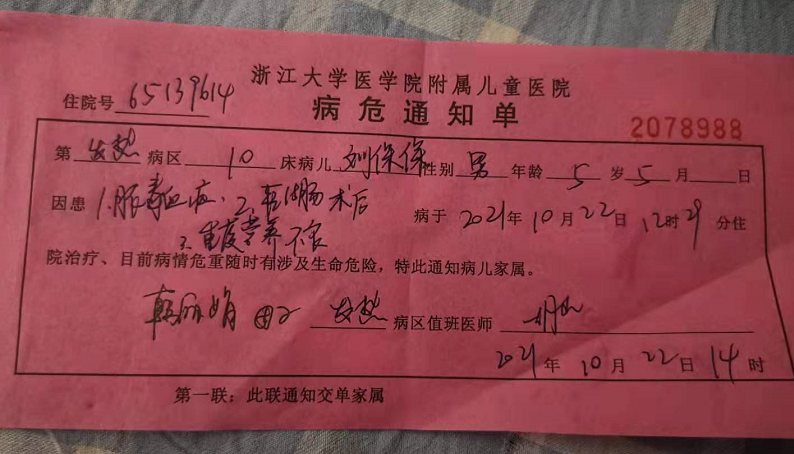 浙江大学医学院附属儿童医院
住院号 65139614
病危通知单
2078988
第 病区 10 床病儿 刘保保 性别 男 年龄 5 岁 5 月 日
因患 1.脓毒血症、2. 肠术后 病于 2021年 10 月 22 日 12时 29 分住
3.重度营养不良
院治疗、目前病情危重随时有涉及生命危险，特此通知病儿家属。
韩丽娟 病区值班医师
2021 年 10 月 22 日 14 时
第一联：此联通知交单家属